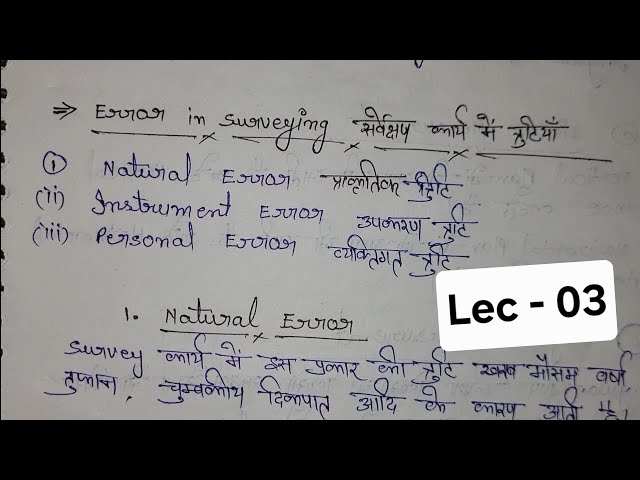 ⇒ Error in surveying सर्वेक्षण कार्य में त्रुटियाँ
(i) Natural Error प्राकृतिक त्रुटि
(ii) Instrument Error उपकरण त्रुटि
(iii) Personal Error व्यक्तिगत त्रुटि
Lec - 03
1. Natural Error
Survey कार्य में इस प्रकार की त्रुटि खराब मौसम वर्षा
तुफान, चुम्बकीय दिकपात आदि के कारण आती है।